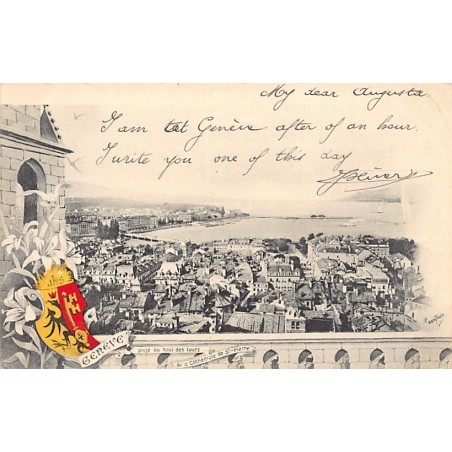 My dear Augusta.
I am at Genève after of an hour.
I write you one of this day
Oliver
JHS
GENÈVE
prise du haut des tours
de la Cathédrale de St-Pierre